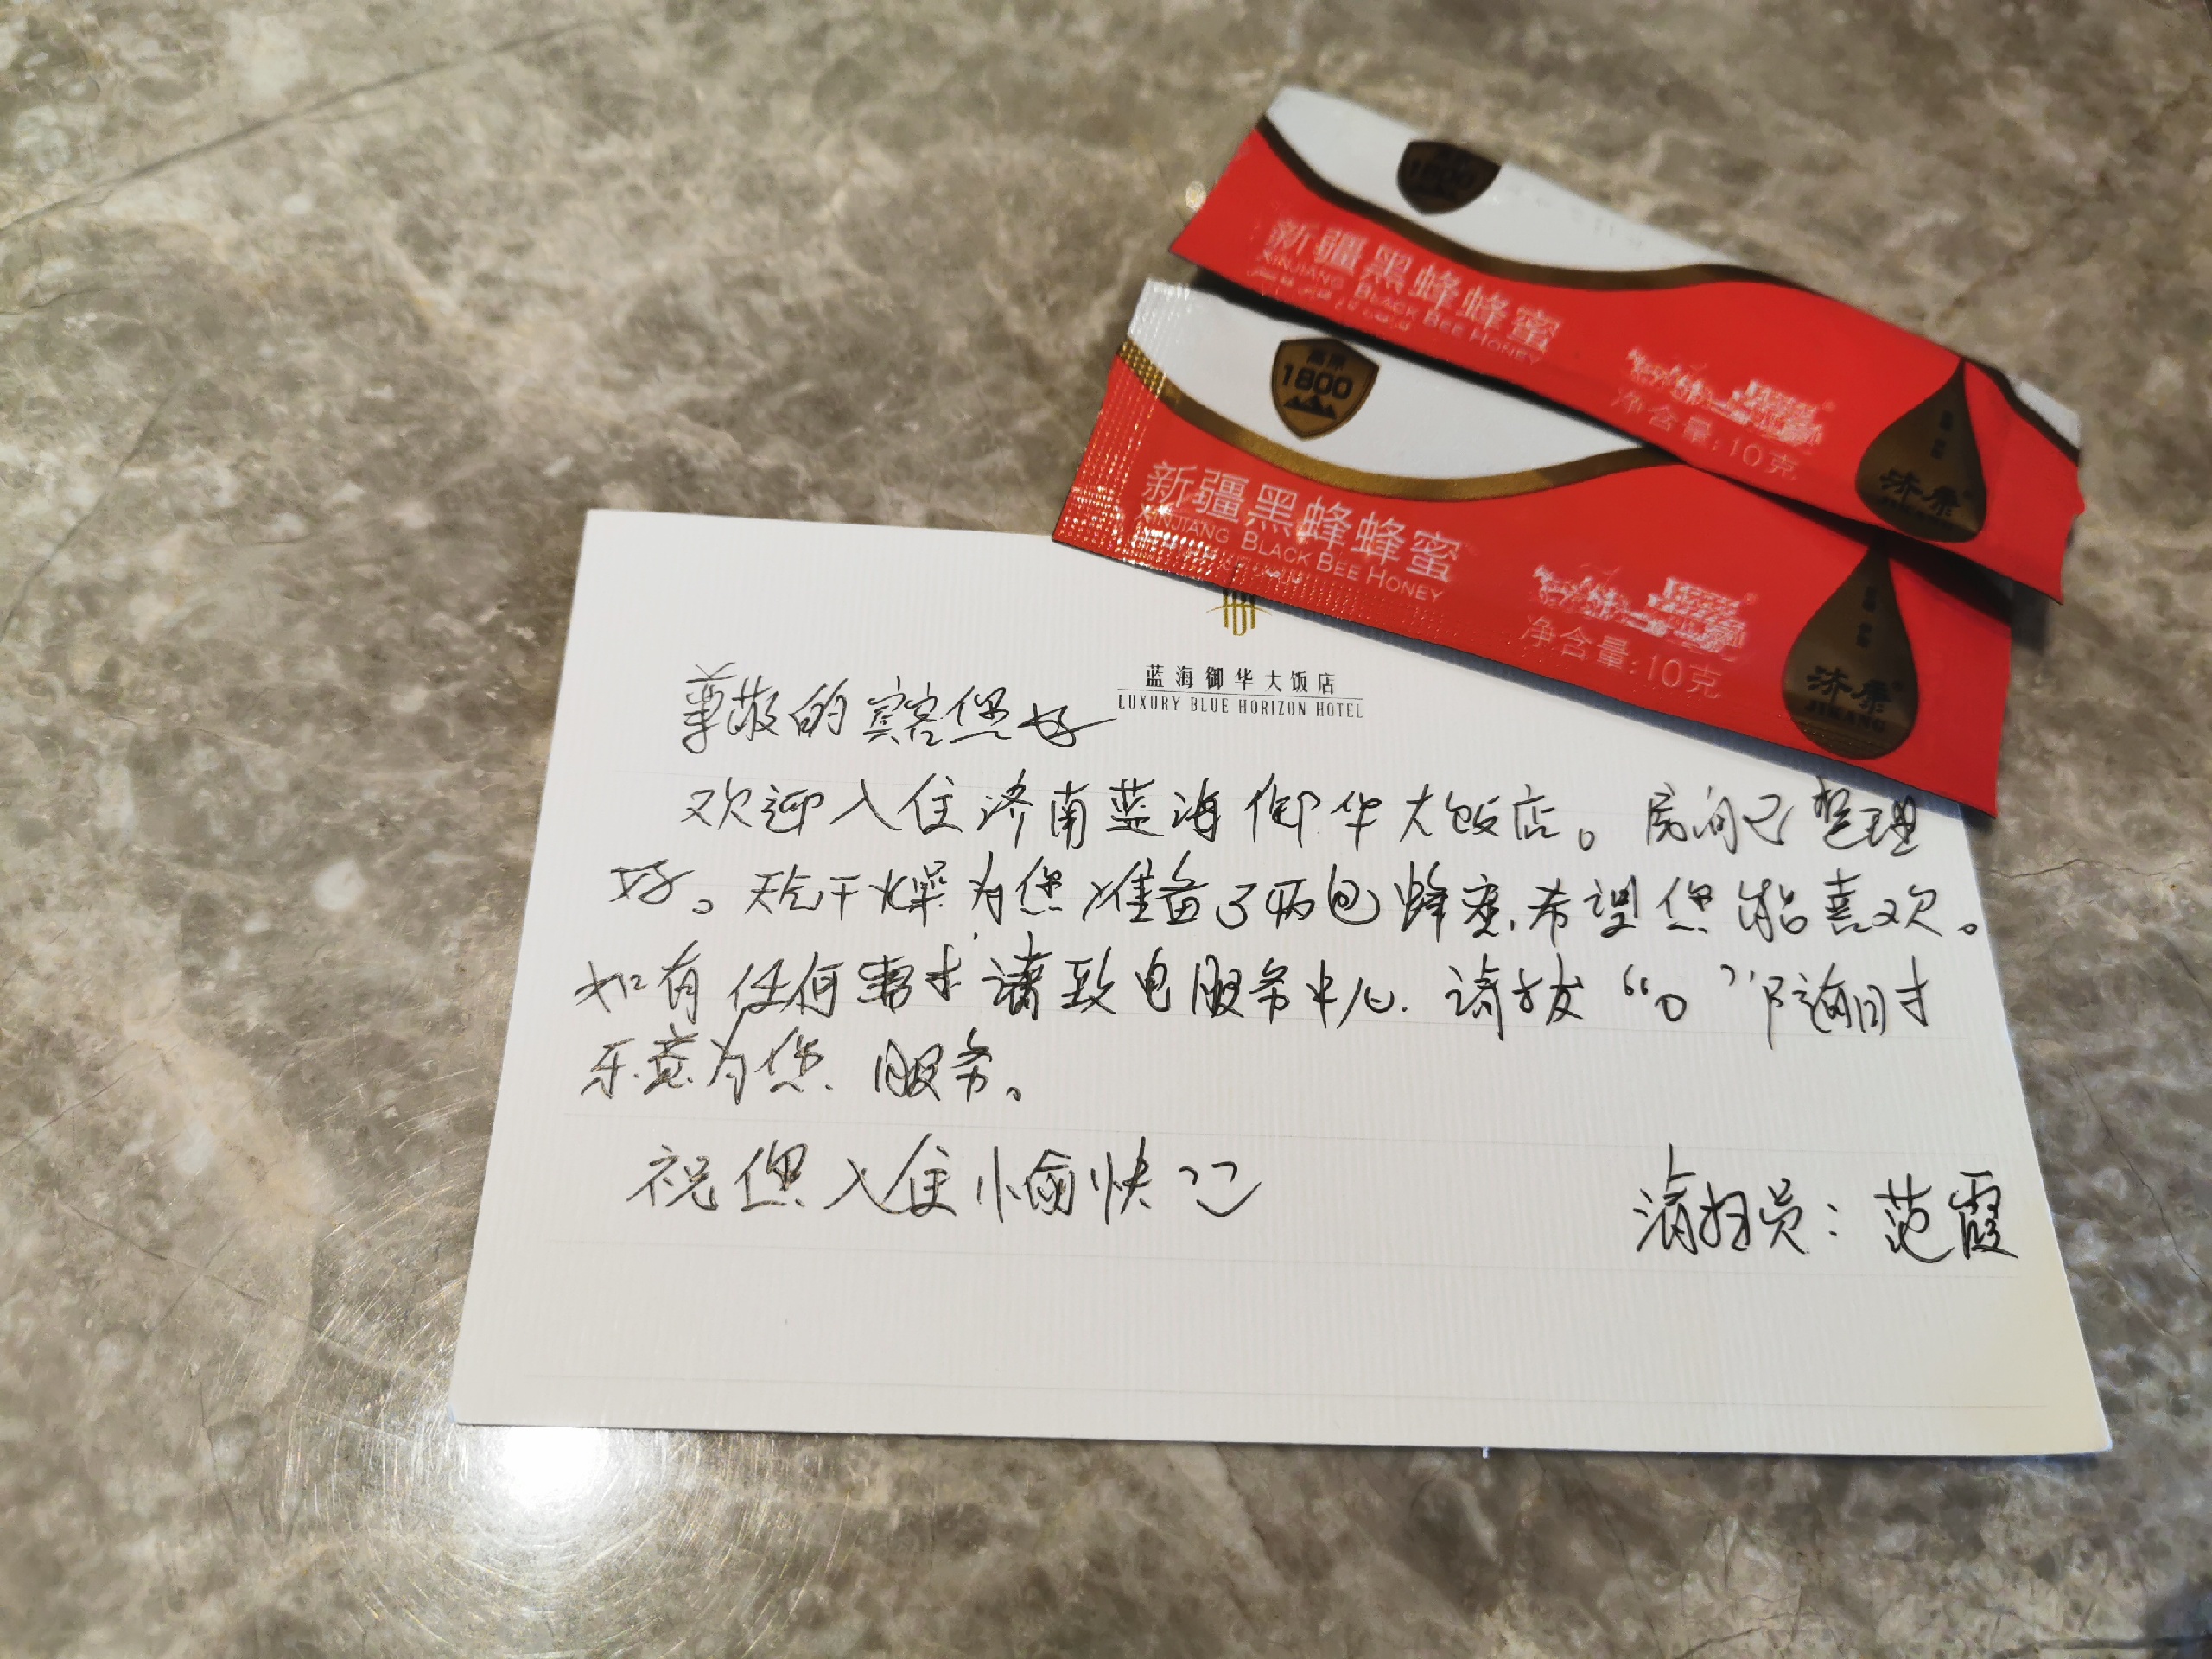 1800
新疆黑蜂蜂蜜
XINJIANG BLACK BEE HONEY
净含量:10克
济康
高原
1800
新疆黑蜂蜂蜜
XINJIANG BLACK BEE HONEY
净含量:10克
济康
JIKANG
蓝海御华大饭店
LUXURY BLUE HORIZON HOTEL
尊敬的宾客您好
欢迎入住济南蓝海御华大饭店。房间已整理
好。天气干燥为您准备了两包蜂蜜,希望您能喜欢。
如有任何需求请致电服务中心.请拨“0”随时
乐意为您服务。
祝您入住愉快
清扫员:范霞